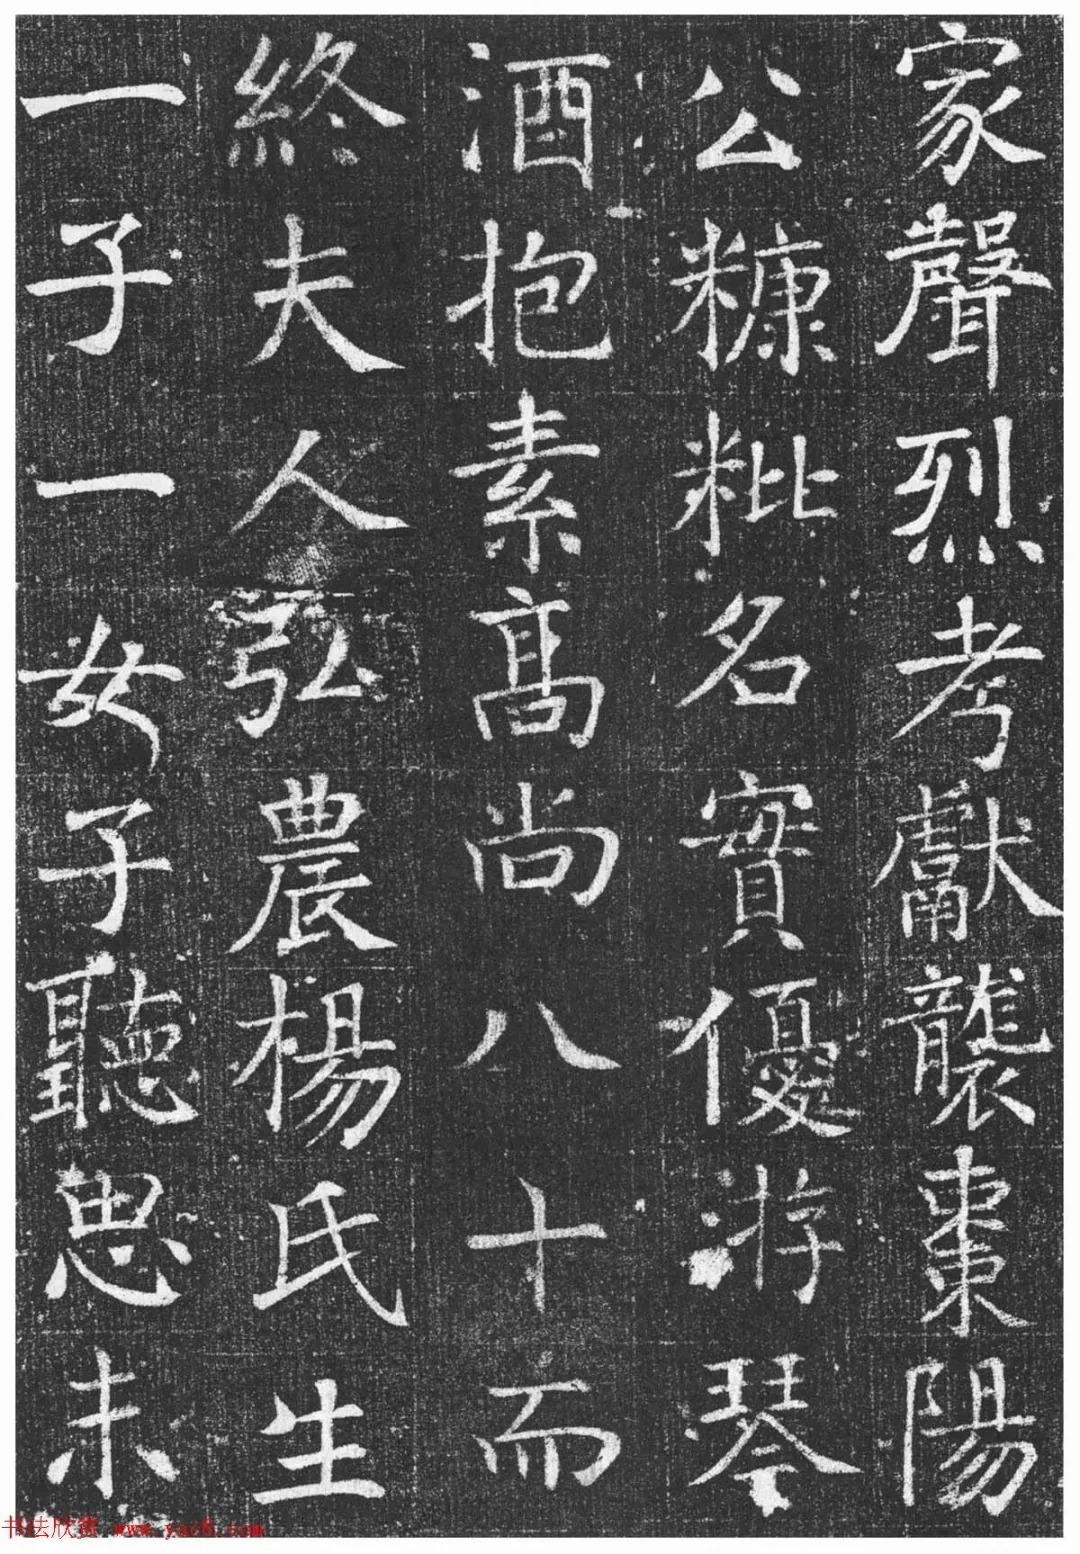 家聲烈考獻襲棗陽
公糠粃名實優游琴
酒抱素髙尚八十而
終夫人弘農楊氏生
一子一女子聽思未
书法欣赏 www.yac8.com